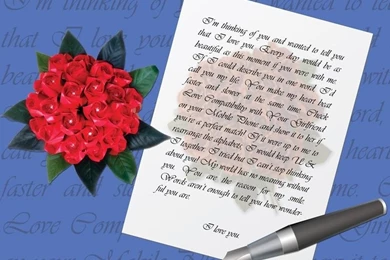 I'm thinking of you and wanted to tell you
that I love you. Every day would be as
beautiful as this moment if you were with me
If I could describe you in one word I'd
call you my life. You make my heart beat
faster and slower at the same time. Check
Love Compatibility with Your Girlfriend
on your Mobile Phone and show it to her if
you're a perfect match! If it were up to me to
rearrange the alphabet, I would keep U &
I together. I tried but I can't stop thinking
about you! My world has no meaning without
you. You are the reason for my smile.
Words aren't enough to tell you how wonder-
ful you are.
I love you